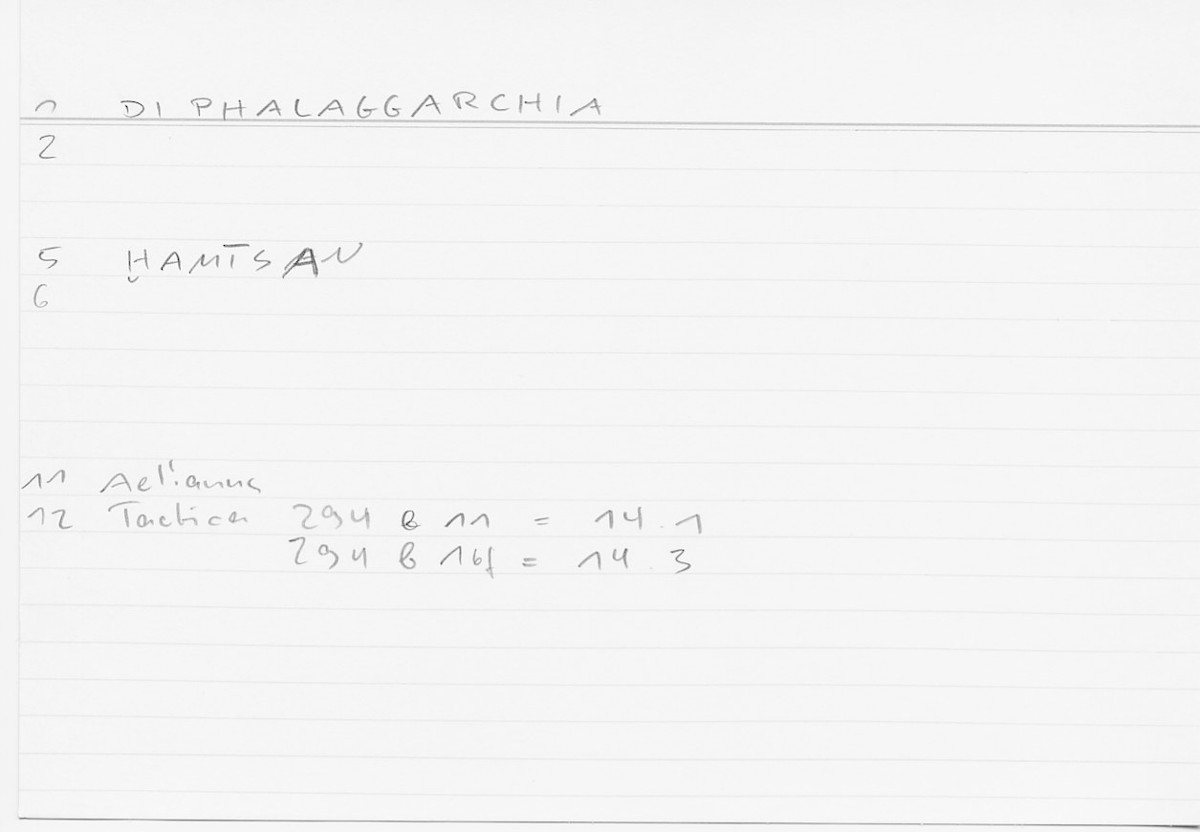 1 DI PHALAGGARCHIA
2
5 ḪAMĪSAN
6
11 Aelianus
12 Tactica 294 b 11 = 14.1
294 b 16f = 14.3